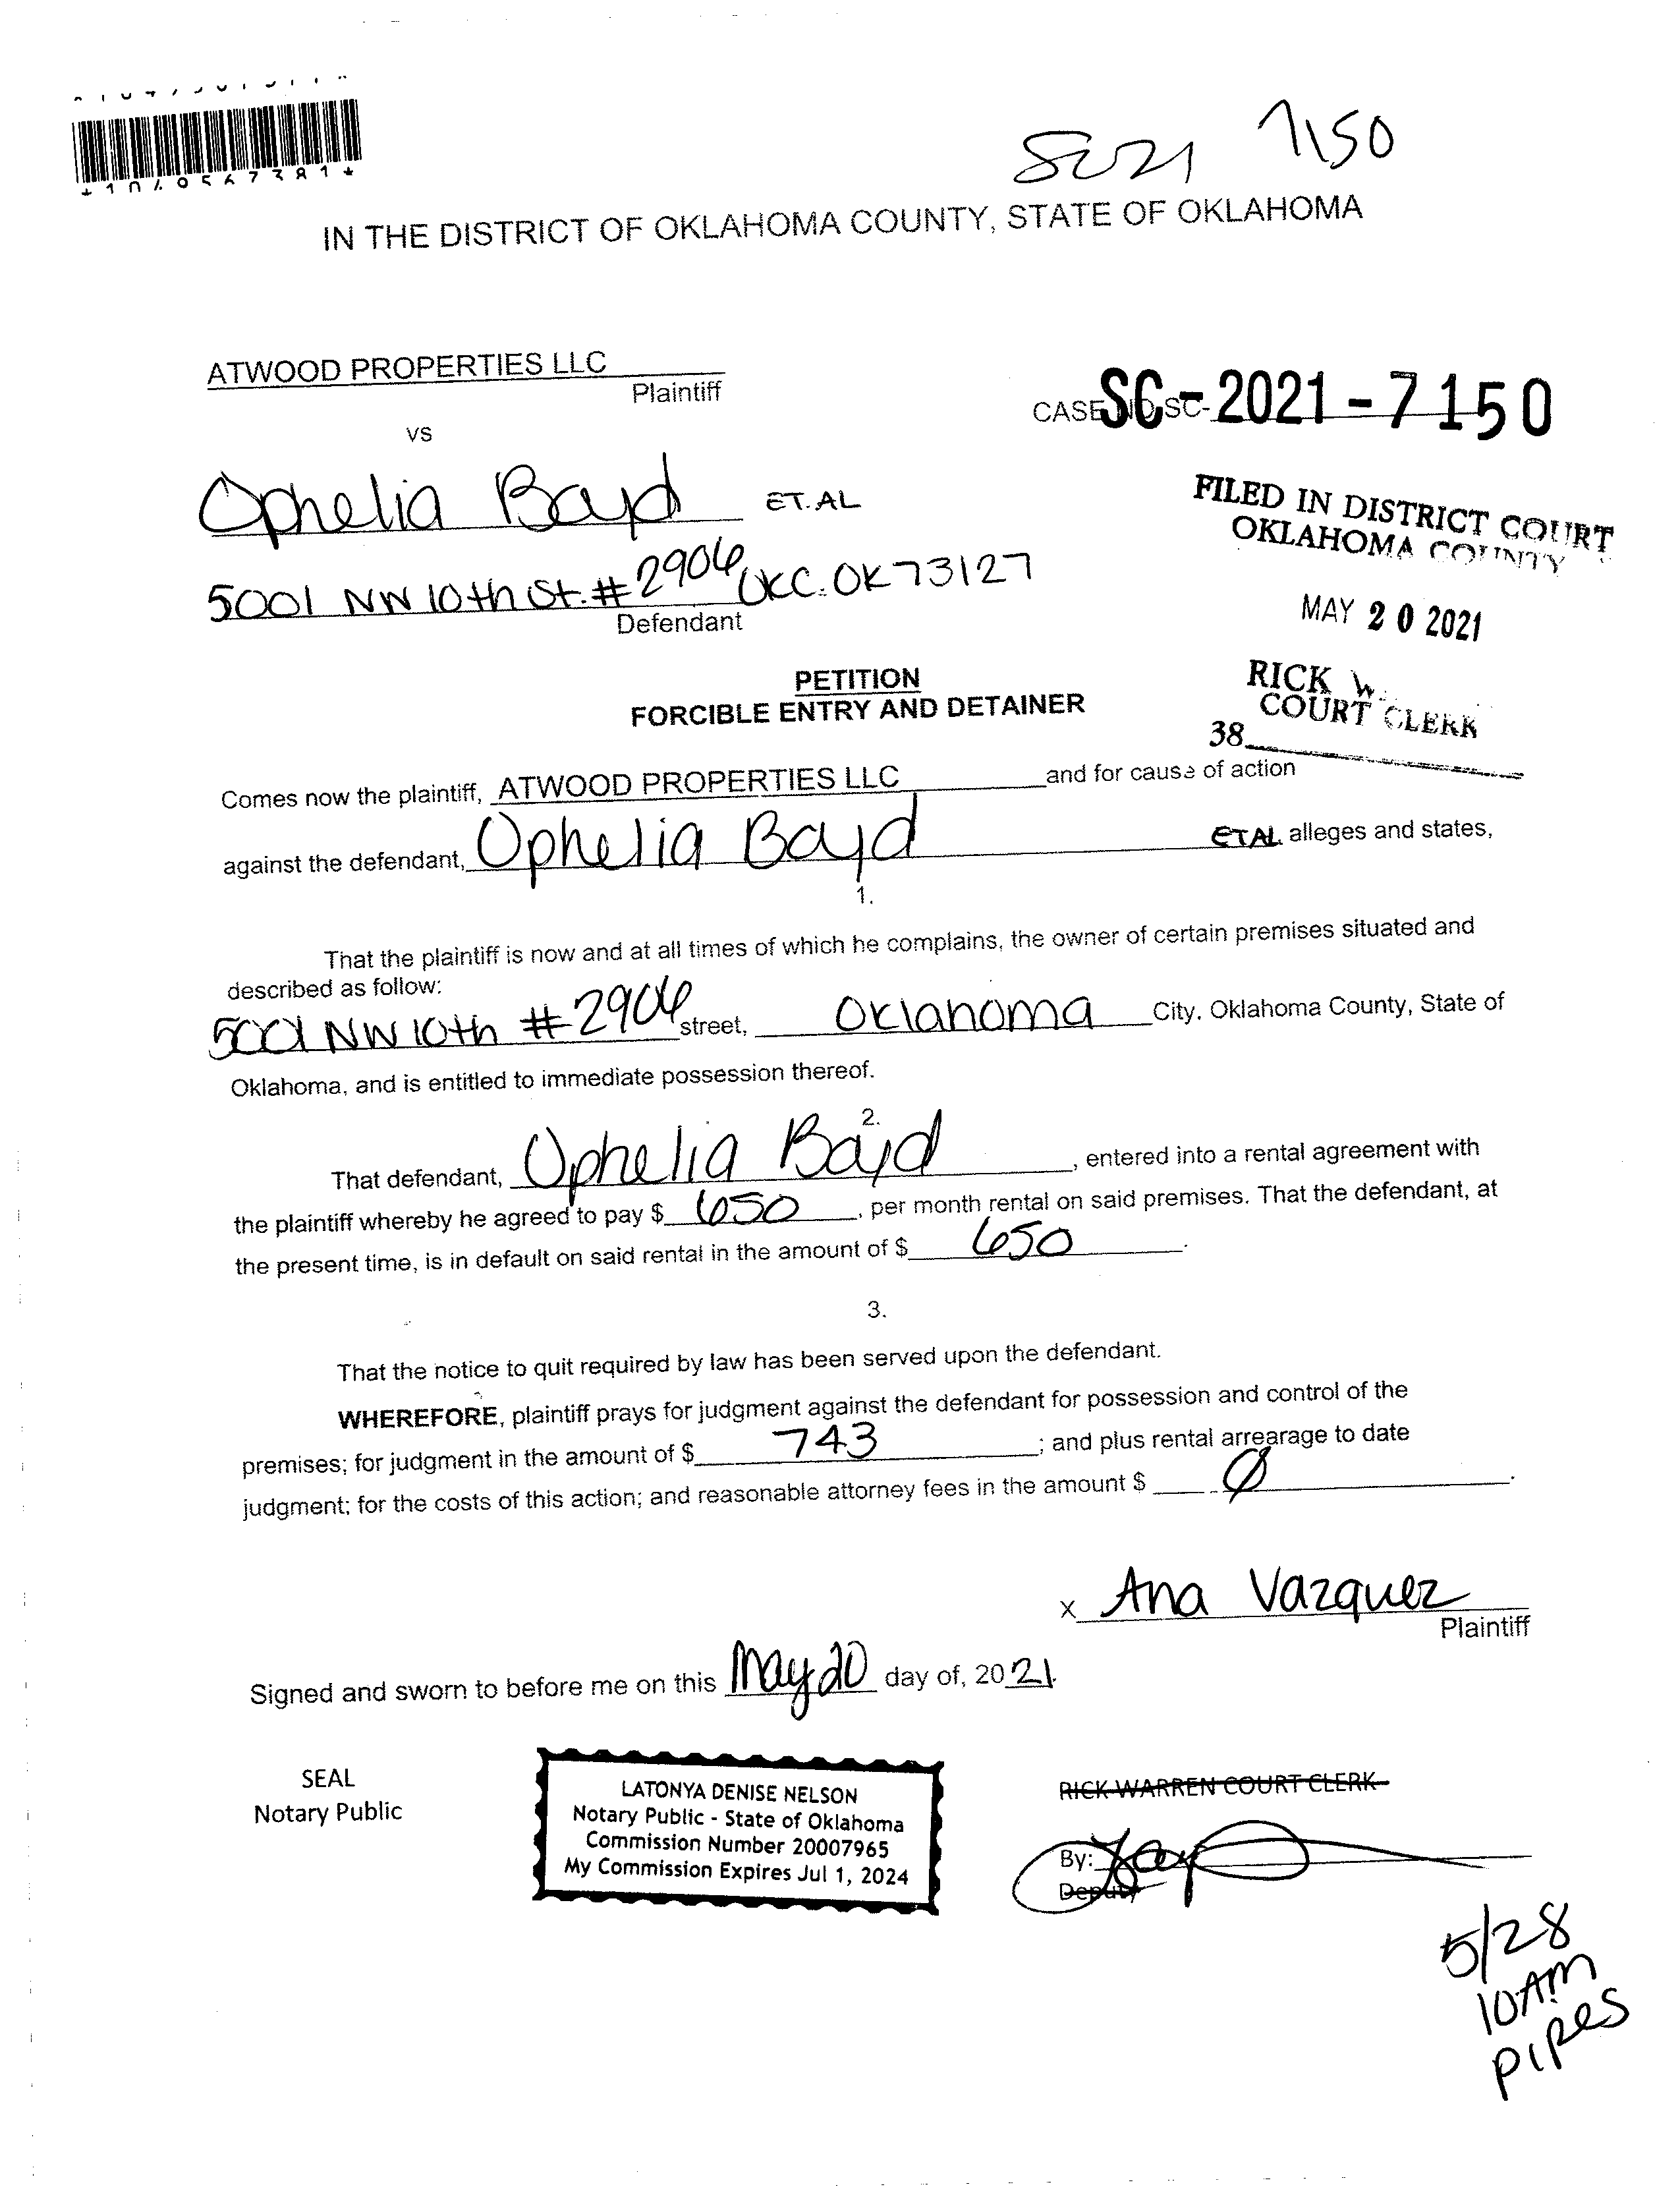 SC21 7150
IN THE DISTRICT OF OKLAHOMA COUNTY, STATE OF OKLAHOMA
ATWOOD PROPERTIES LLC
Plaintiff
vs
CASE NO SC- SC-2021-7150
Ophelia Bayd ET.AL
5001 NW 10th St. #2906 OKC. OK 73127
Defendant
FILED IN DISTRICT COURT
OKLAHOMA COUNTY
MAY 20 2021
RICK W.
COURT CLERK
38
PETITION
FORCIBLE ENTRY AND DETAINER
Comes now the plaintiff, ATWOOD PROPERTIES LLC and for cause of action
against the defendant, Ophelia Bayd ETAL alleges and states,
1.
That the plaintiff is now and at all times of which he complains, the owner of certain premises situated and
described as follow:
5001 NW 10th #2906 street, Oklahoma City. Oklahoma County, State of
Oklahoma, and is entitled to immediate possession thereof.
2.
That defendant, Ophelia Bayd, entered into a rental agreement with
the plaintiff whereby he agreed to pay $ 650, per month rental on said premises. That the defendant, at
the present time, is in default on said rental in the amount of $ 650.
3.
That the notice to quit required by law has been served upon the defendant.
WHEREFORE, plaintiff prays for judgment against the defendant for possession and control of the
premises; for judgment in the amount of $ 743; and plus rental arrearage to date
judgment; for the costs of this action; and reasonable attorney fees in the amount $ Ø.
x Ana Vazquez
Plaintiff
Signed and sworn to before me on this May 20 day of, 2021.
SEAL
Notary Public
LATONYA DENISE NELSON
Notary Public - State of Oklahoma
Commission Number 20007965
My Commission Expires Jul 1, 2024
RICK WARREN COURT CLERK
By:
Deputy
5/28
10AM
PIPES